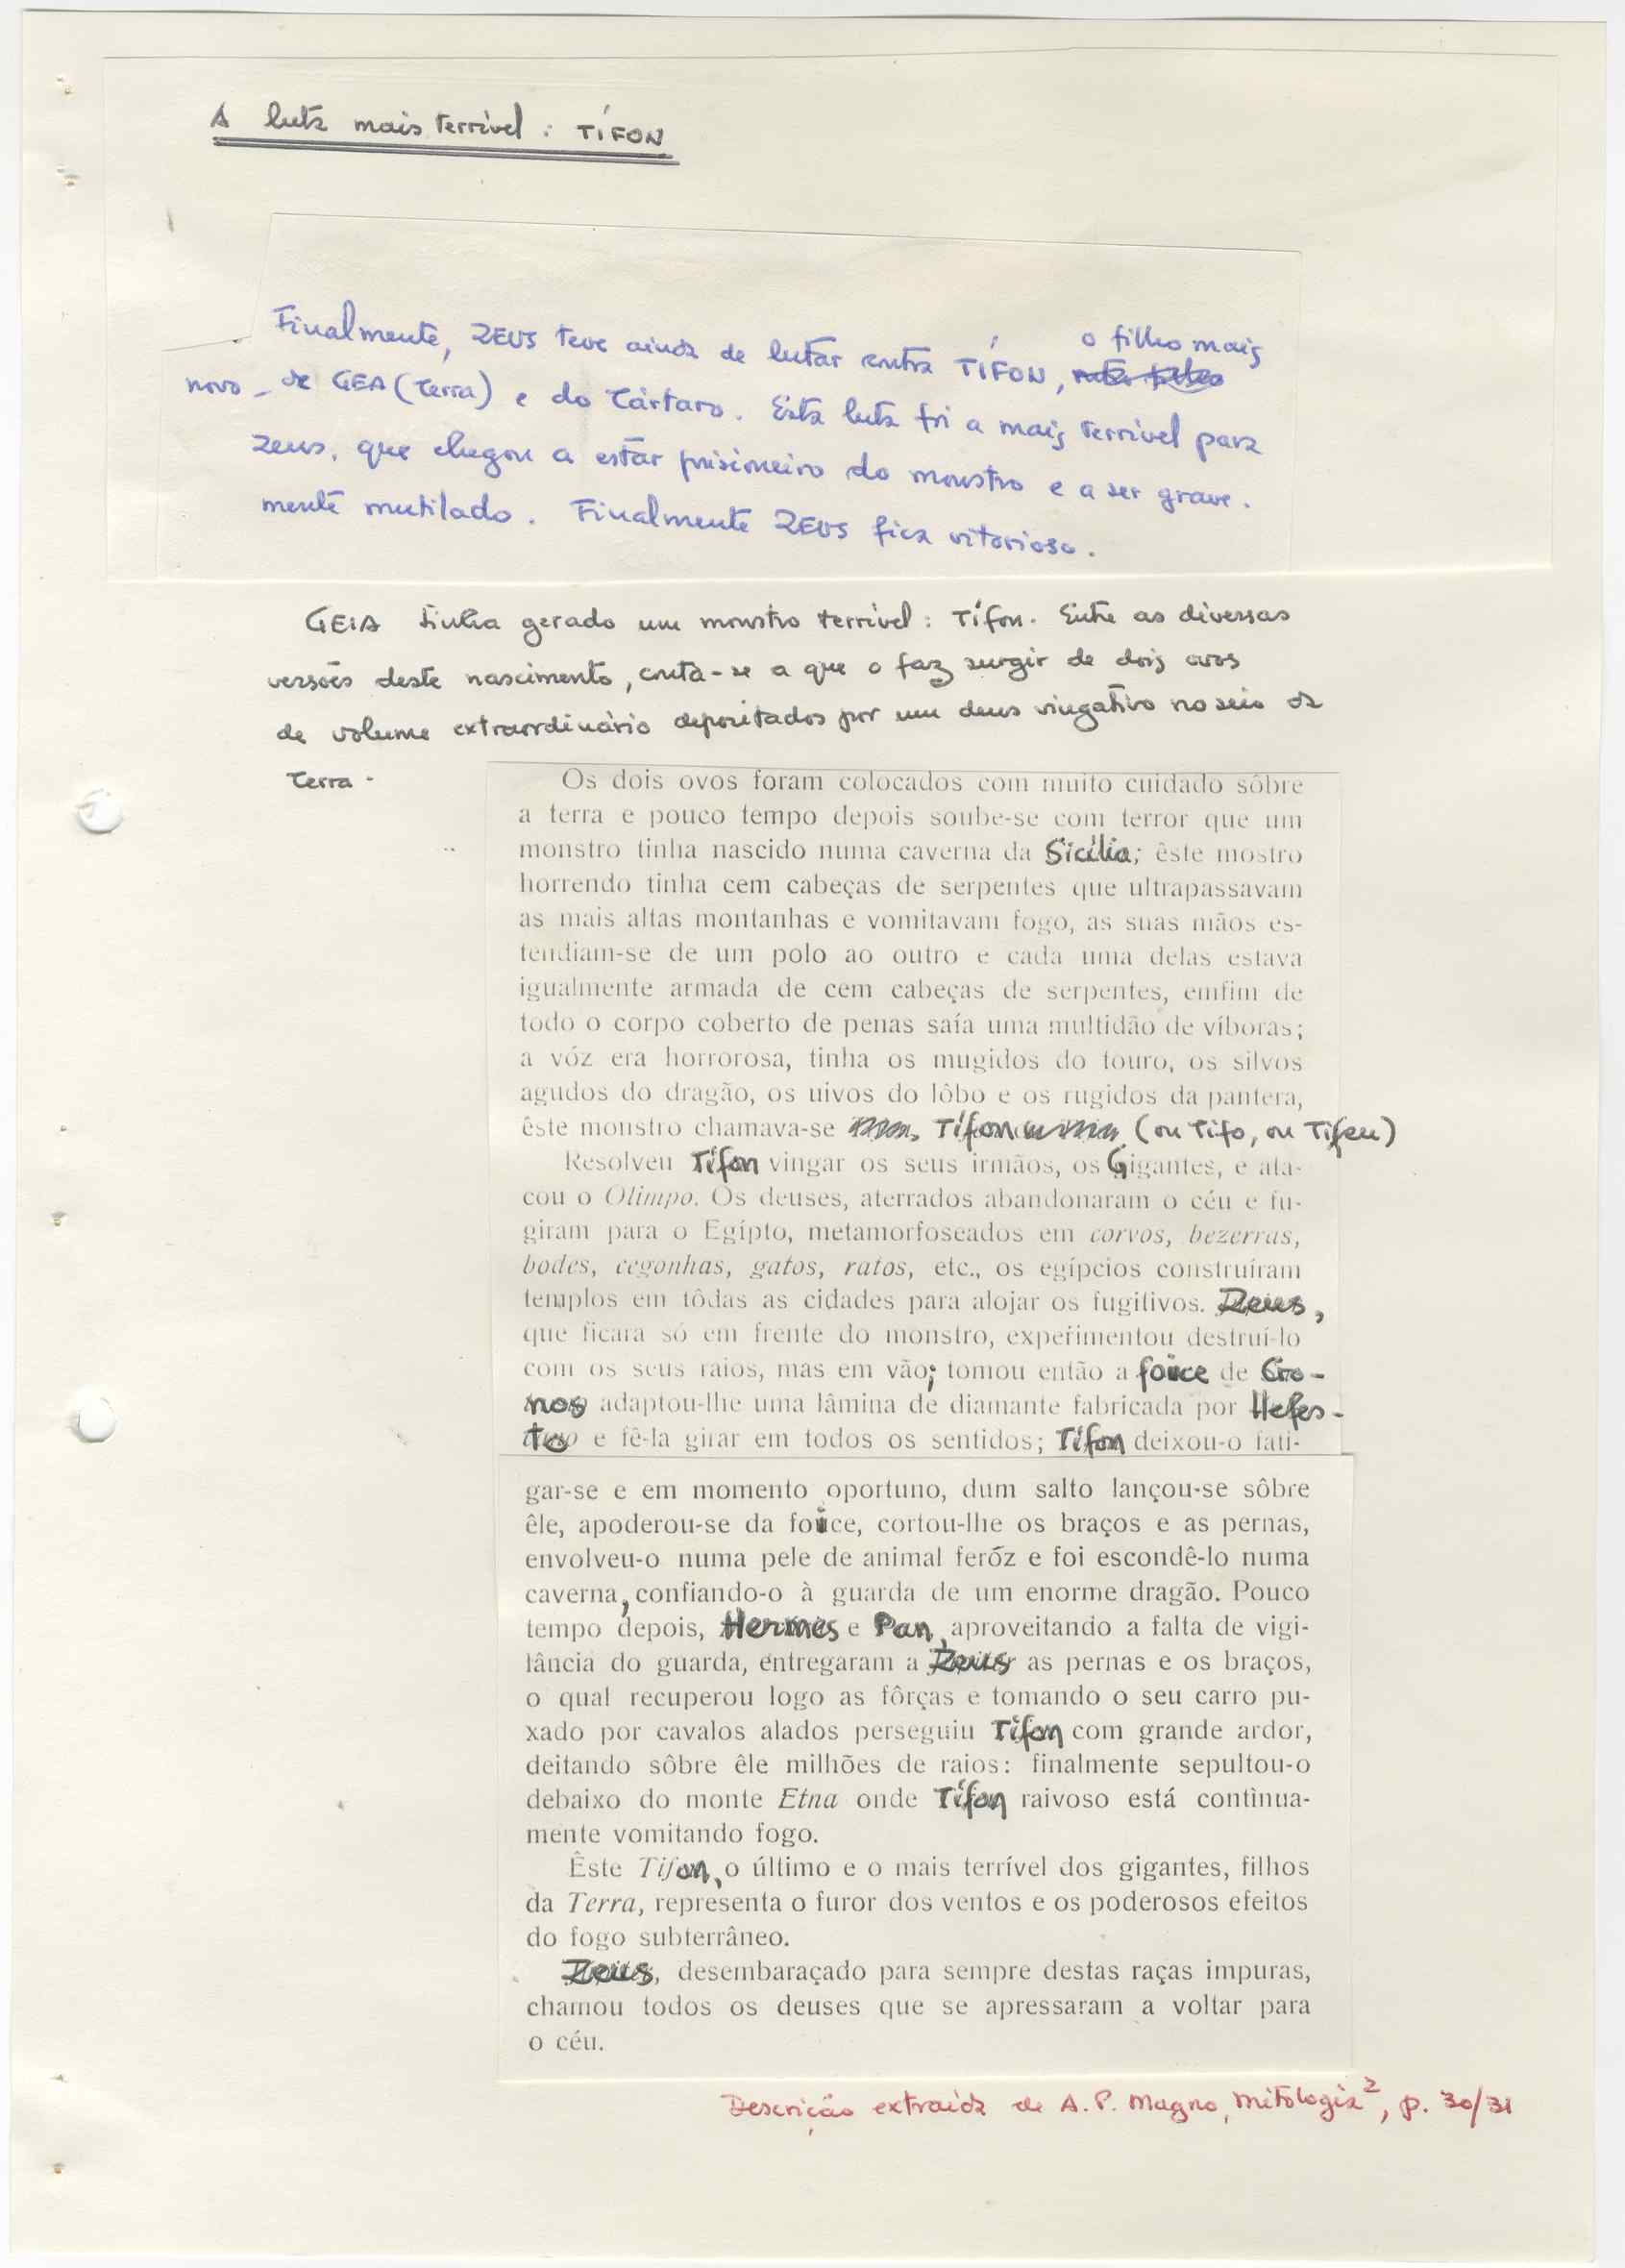 A luta mais terrível: TÍFON
Finalmente, ZEUS teve ainda de lutar contra TÍFON, o filho mais
novo de GEA (Terra) e do Tártaro. Esta luta foi a mais terrível para
Zeus, que chegou a estar prisioneiro do monstro e a ser grave-
mente mutilado. Finalmente ZEUS fica vitorioso.
GEIA tinha gerado um monstro terrível: Tífon. Entre as diversas
versões deste nascimento, conta-se a que o faz surgir de dois ovos
de volume extraordinário depositados por um deus vingativo no seio da
Terra.
Os dois ovos foram colocados com muito cuidado sôbre
a terra e pouco tempo depois soube-se com terror que um
monstro tinha nascido numa caverna da Sicília; êste mostro
horrendo tinha cem cabeças de serpentes que ultrapassavam
as mais altas montanhas e vomitavam fogo, as suas mãos es-
tendiam-se de um polo ao outro e cada uma delas estava
igualmente armada de cem cabeças de serpentes, emfim de
todo o corpo coberto de penas saía uma multidão de víboras;
a vóz era horrorosa, tinha os mugidos do touro, os silvos
agudos do dragão, os uivos do lôbo e os rugidos da pantera,
êste monstro chamava-se Tífon (ou Tifo, ou Tifeu)
Resolveu Tífon vingar os seus irmãos, os Gigantes, e ata-
cou o Olimpo. Os deuses, aterrados abandonaram o céu e fu-
giram para o Egípto, metamorfoseados em corvos, bezerras,
bodes, cegonhas, gatos, ratos, etc., os egípcios construíram
templos em tôdas as cidades para alojar os fugitivos. Zeus,
que ficara só em frente do monstro, experimentou destruí-lo
com os seus raios, mas em vão; tomou então a foice de Cro-
nos adaptou-lhe uma lâmina de diamante fabricada por Hefes-
to e fê-la girar em todos os sentidos; Tífon deixou-o fati-
gar-se e em momento oportuno, dum salto lançou-se sôbre
êle, apoderou-se da foice, cortou-lhe os braços e as pernas,
envolveu-o numa pele de animal feróz e foi escondê-lo numa
caverna, confiando-o à guarda de um enorme dragão. Pouco
tempo depois, Hermes e Pan, aproveitando a falta de vigi-
lância do guarda, entregaram a Zeus as pernas e os braços,
o qual recuperou logo as fôrças e tomando o seu carro pu-
xado por cavalos alados perseguiu Tífon com grande ardor,
deitando sôbre êle milhões de raios: finalmente sepultou-o
debaixo do monte Etna onde Tífon raivoso está contìnua-
mente vomitando fogo.
Êste Tifon, o último e o mais terrível dos gigantes, filhos
da Terra, representa o furor dos ventos e os poderosos efeitos
do fogo subterrâneo.
Zeus, desembaraçado para sempre destas raças impuras,
chamou todos os deuses que se apressaram a voltar para
o céu.
Descrição extraída de A. P. Magno, Mitologia², p. 30/31